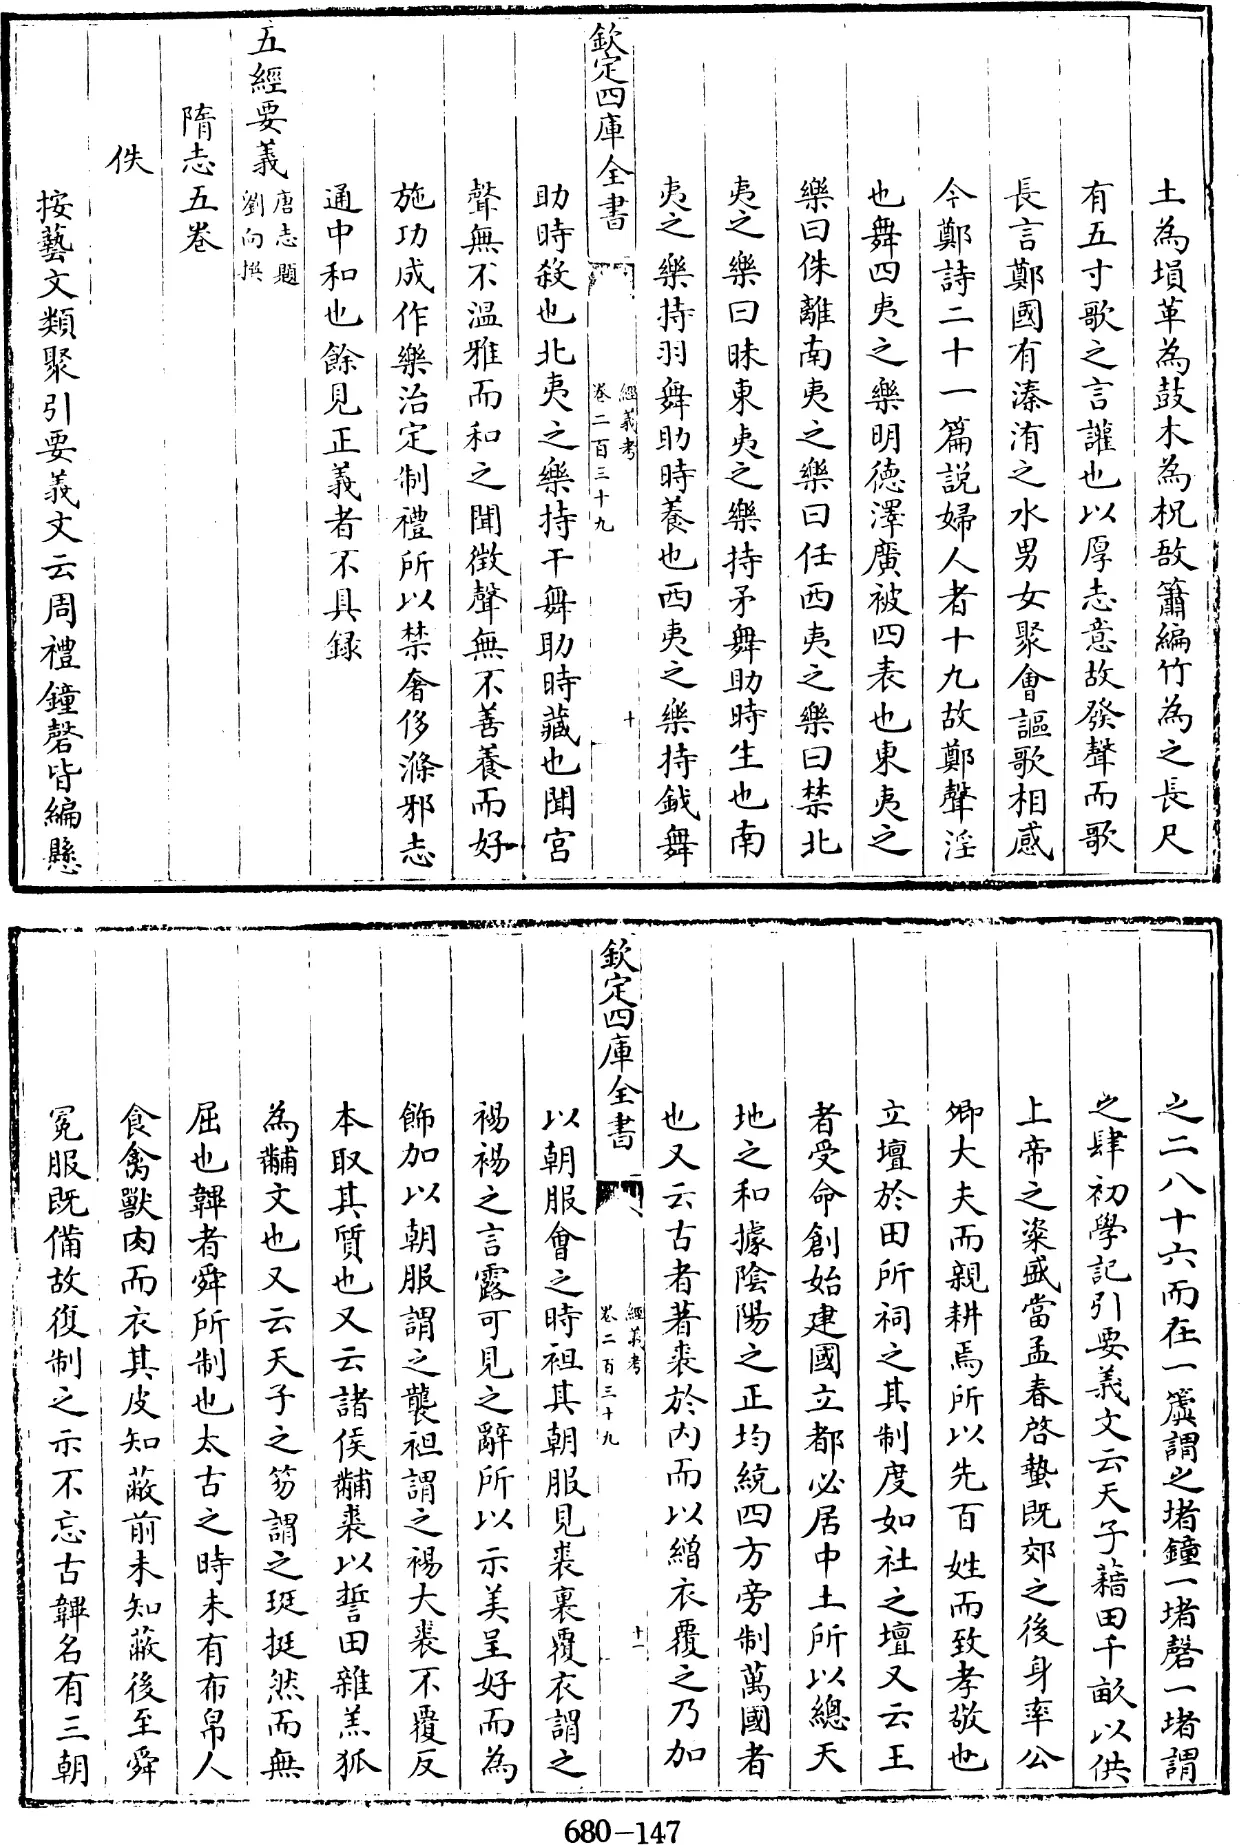 土為塤革為鼓木為柷敔簫編竹為之長尺
有五寸歌之言讙也以厚志意故發聲而歌
長言鄭國有溱洧之水男女聚會謳歌相感
今鄭詩二十一篇説婦人者十九故鄭聲淫
也舞四夷之樂明德澤廣被四表也東夷之
樂曰侏離南夷之樂曰任西夷之樂曰禁北
夷之樂曰昧東夷之樂持矛舞助時生也南
夷之樂持羽舞助時養也西夷之樂持鉞舞
欽定四庫全書
經義考
卷二百三十九
十
助時殺也北夷之樂持干舞助時藏也聞宮
聲無不溫雅而和之聞徵聲無不善養而好
施功成作樂治定制禮所以禁奢侈滌邪志
通中和也餘見正義者不具録
五經要義
唐志題
劉向撰
隋志五卷
佚
按藝文類聚引要義文云周禮鐘磬皆編懸
之二八十六而在一簴謂之堵鐘一堵磬一堵謂
之肆初學記引要義文云天子藉田千畝以供
上帝之粢盛當孟春啓蟄既郊之後身率公
卿大夫而親耕焉所以先百姓而致孝敬也
立壇於田所祠之其制度如社之壇又云王
者受命創始建國立都必居中土所以總天
地之和據陰陽之正均統四方旁制萬國者
也又云古者著裘於内而以繒衣覆之乃加
欽定四庫全書
經義考
卷二百三十九
十一
以朝服會之時袒其朝服見裘裏覆衣謂之
裼裼之言露可見之辭所以示美呈好而為
飾加以朝服謂之襲袒謂之裼大裘不覆反
本取其質也又云諸侯黼裘以誓田雜羔狐
為黼文也又云天子之笏謂之珽挺然而無
屈也韠者舜所制也太古之時未有布帛人
食禽獸肉而衣其皮知蔽前未知蔽後至舜
冕服既備故復制之示不忘古韠名有三朝
680-147